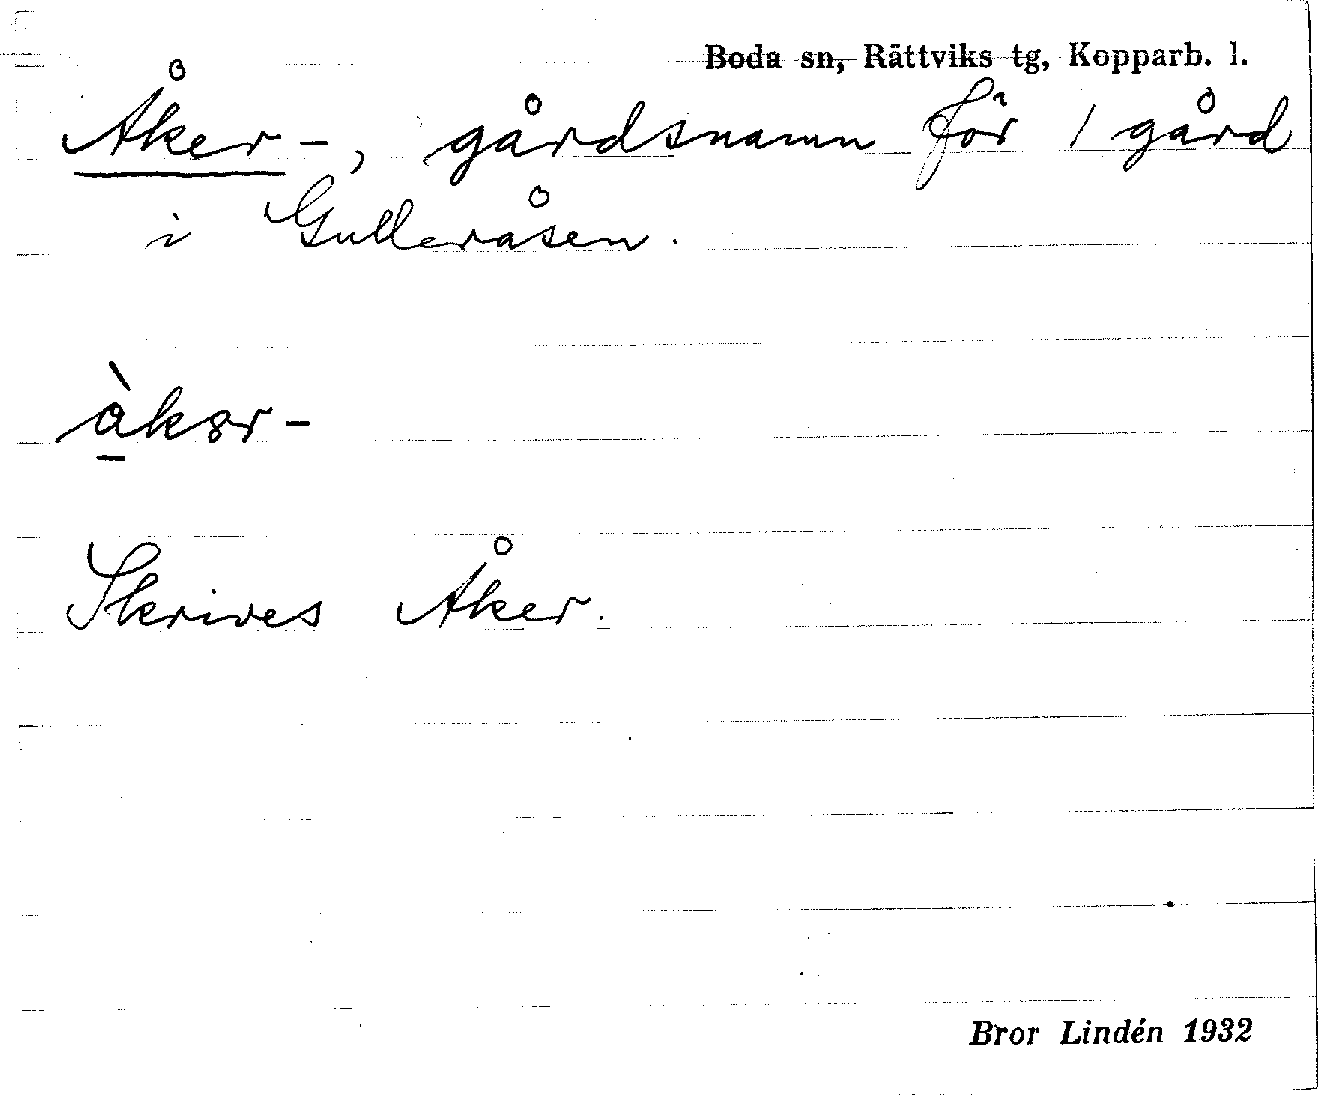 Boda sn, Rättviks tg, Kopparb. l.
Åker-, gårdsnamn för 1 gård
i Gulleråsen.
Skrives Åker.
Bror Lindén 1932